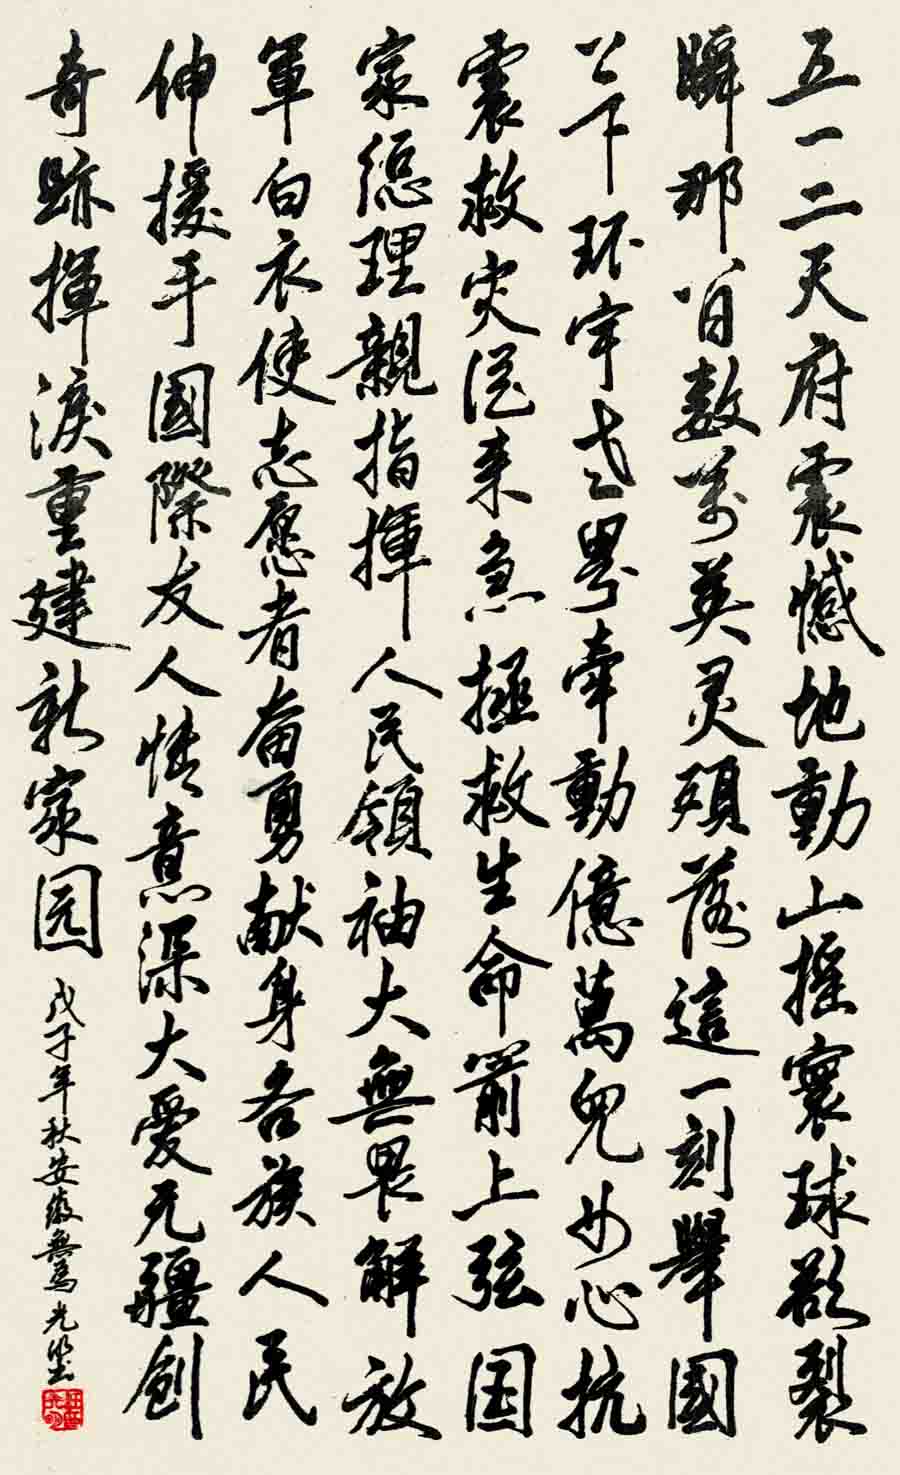 五一二天府震憾地動山摇寰球欲裂
瞬那間數萬英灵殒落這一刻舉國
上下环宇世界牵動億萬兒女心抗
震救灾從来急拯救生命箭上弦国
家總理親指揮人民領袖大無畏解放
軍白衣使志愿者奋勇献身各族人民
伸援手國際友人情意深大愛无疆創
奇跡揮淚重建新家园
戊子年秋安徽無為光